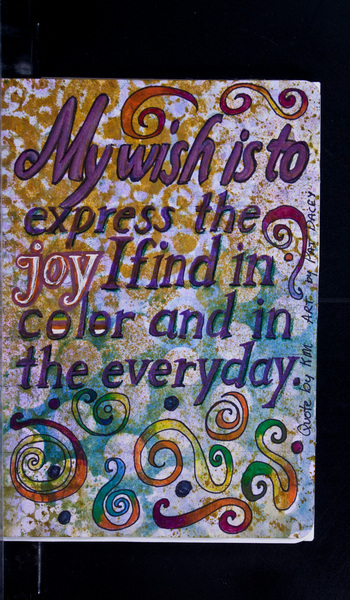 My wish is to
express the
joy I find in
color and in
the everyday.
Quote by KIM ART by MAT DACEY